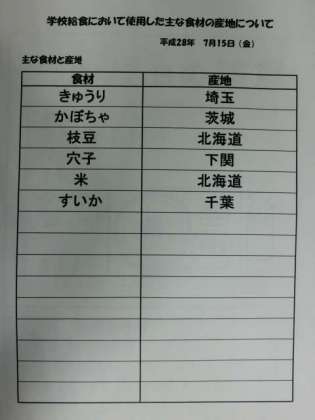 学校給食において使用した主な食材の産地について
平成28年 7月15日（金）
主な食材と産地
食材 産地
きゅうり 埼玉
かぼちゃ 茨城
枝豆 北海道
穴子 下関
米 北海道
すいか 千葉